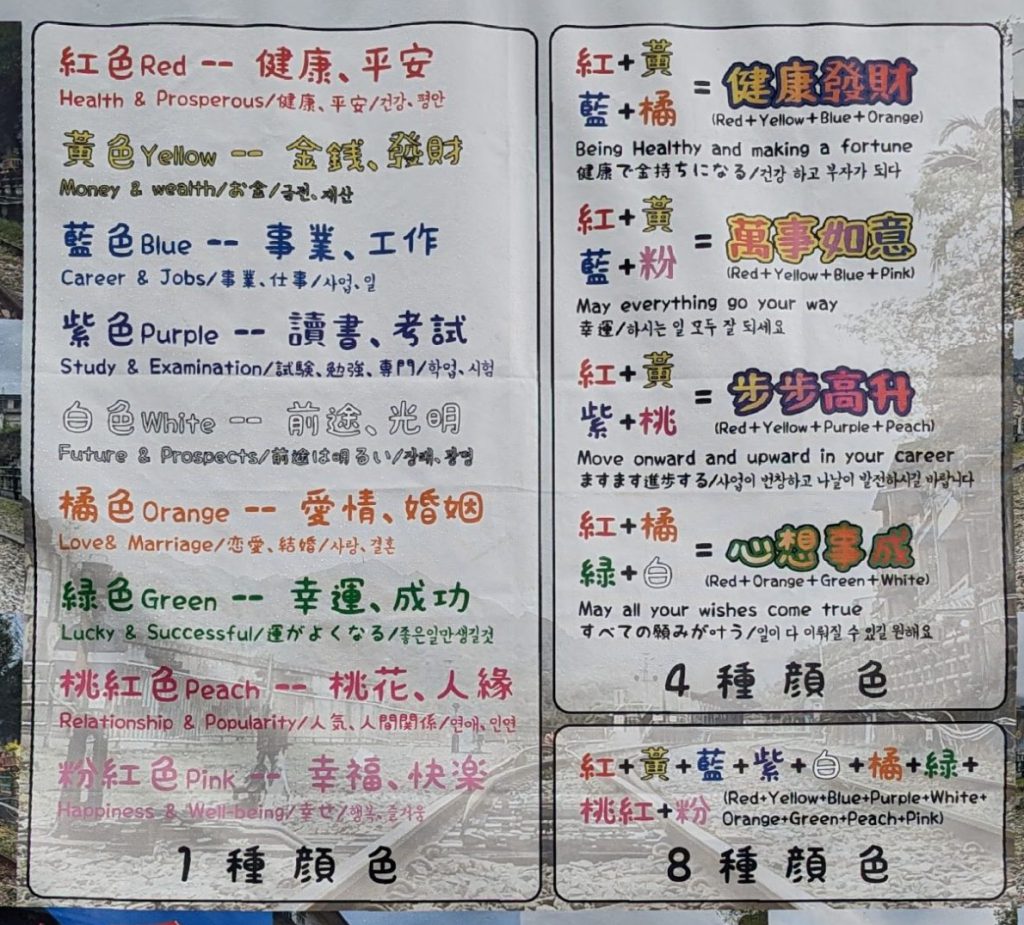 紅色Red -- 健康、平安
Health & Prosperous/健康、平安/건강、평안
黃色Yellow -- 金銭、發財
Money & wealth/お金/금전、재산
藍色Blue -- 事業、工作
Career & Jobs/事業、仕事/사업、일
紫色Purple -- 讀書、考試
Study & Examination/試験、勉強、専門/학업、시험
白色White -- 前途、光明
Future & Prospects/前途は明るい/장래、광명
橘色Orange -- 愛情、婚姻
Love& Marriage/恋愛、結婚/사랑、결혼
緑色Green -- 幸運、成功
Lucky & Successful/運がよくなる/좋은일만생길것
桃紅色Peach -- 桃花、人緣
Relationship & Popularity/人気、人間関係/연애、인연
粉紅色Pink -- 幸福、快楽
Happiness & Well-being/幸せ/행복、즐거움
1種顔色
紅+黃
藍+橘
=健康發財
(Red+Yellow+Blue+Orange)
Being Healthy and making a fortune
健康で金持ちになる/건강 하고 부자가 되다
紅+黃
藍+粉
=萬事如意
(Red+Yellow+Blue+Pink)
May everything go your way
幸運/하시는 일 모두 잘 되세요
紅+黃
紫+桃
=步步高升
(Red+Yellow+Purple+Peach)
Move onward and upward in your career
ますます進歩する/사업이 번창하고 나날이 발전하시길 바랍니다
紅+橘
緑+白
=心想事成
(Red+Orange+Green+White)
May all your wishes come true
すべての願みが叶う/일이 다 이뤄질 수 있길 원해요
4種顔色
紅+黃+藍+紫+白+橘+緑+
桃紅+粉 (Red+Yellow+Blue+Purple+White+
Orange+Green+Peach+Pink)
8種顔色